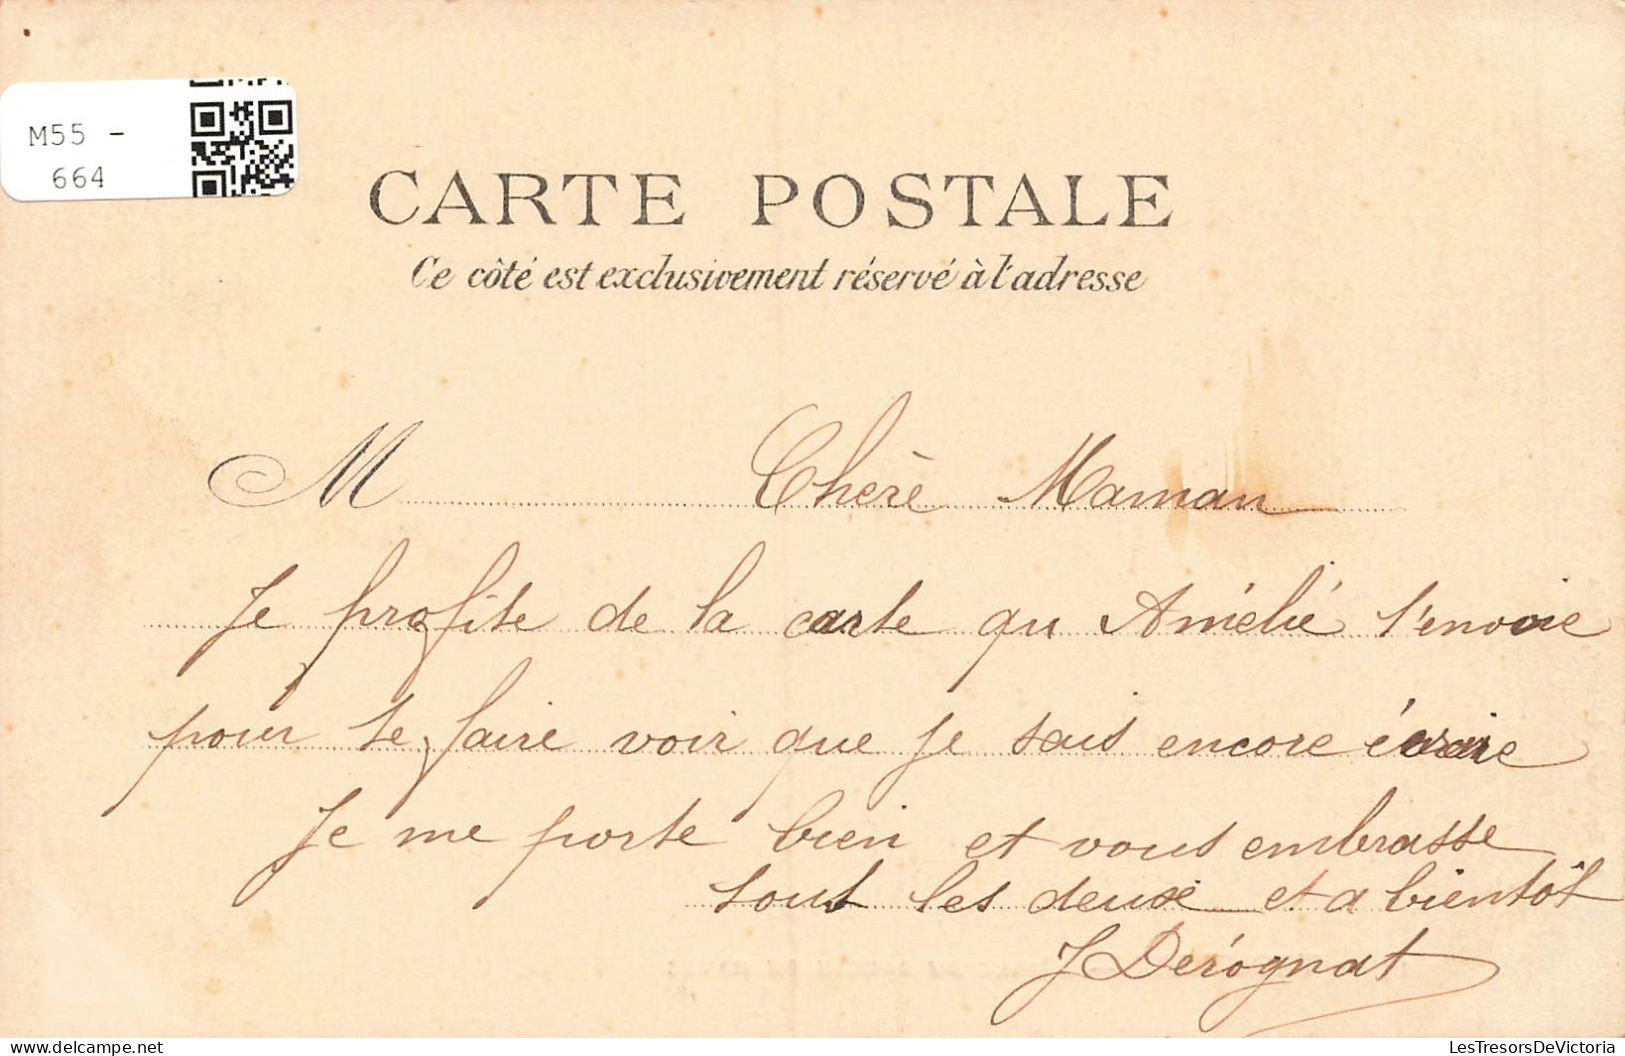 M55 -
664
CARTE POSTALE
Ce côté est exclusivement réservé à l'adresse
M Chère Maman
Je profite de la carte qu Amélie t'envoie
pour te faire voir que je sais encore écrire
Je me porte bien et vous embrasse
tout les deux et a bientôt
J Derognat
LesTresorsDeVictoria